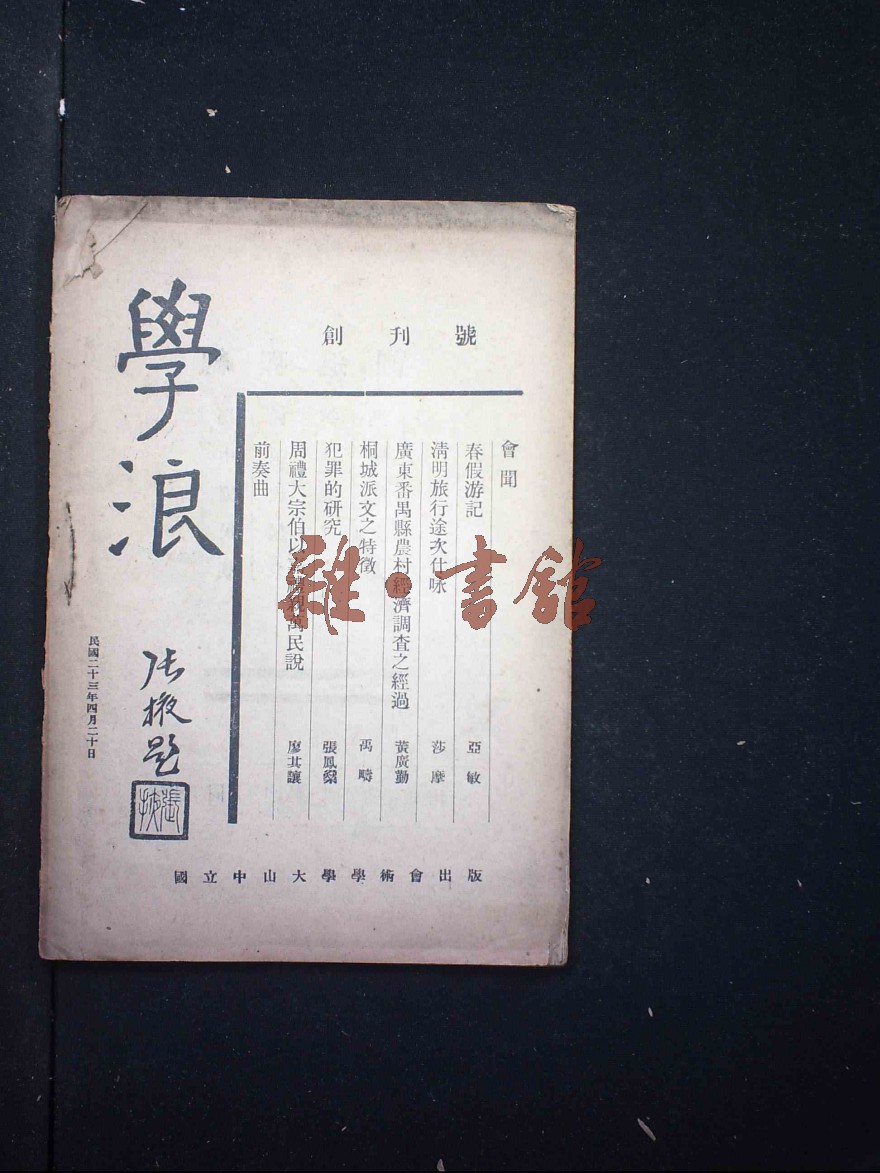 學浪
張掖題
張掖
民國二十三年四月二十日
創刊號
前奏曲
周禮大宗伯以嘉禮親萬民說 廖其讓
犯罪的研究 張鳳
桐城派文之特徵 禹疇
廣東番禺縣農村經濟調查之經過 黃廣勤
清明旅行途次什咏 莎摩
春假游記 亞敏
會聞
國立中山大學學術會出版
雜·書館